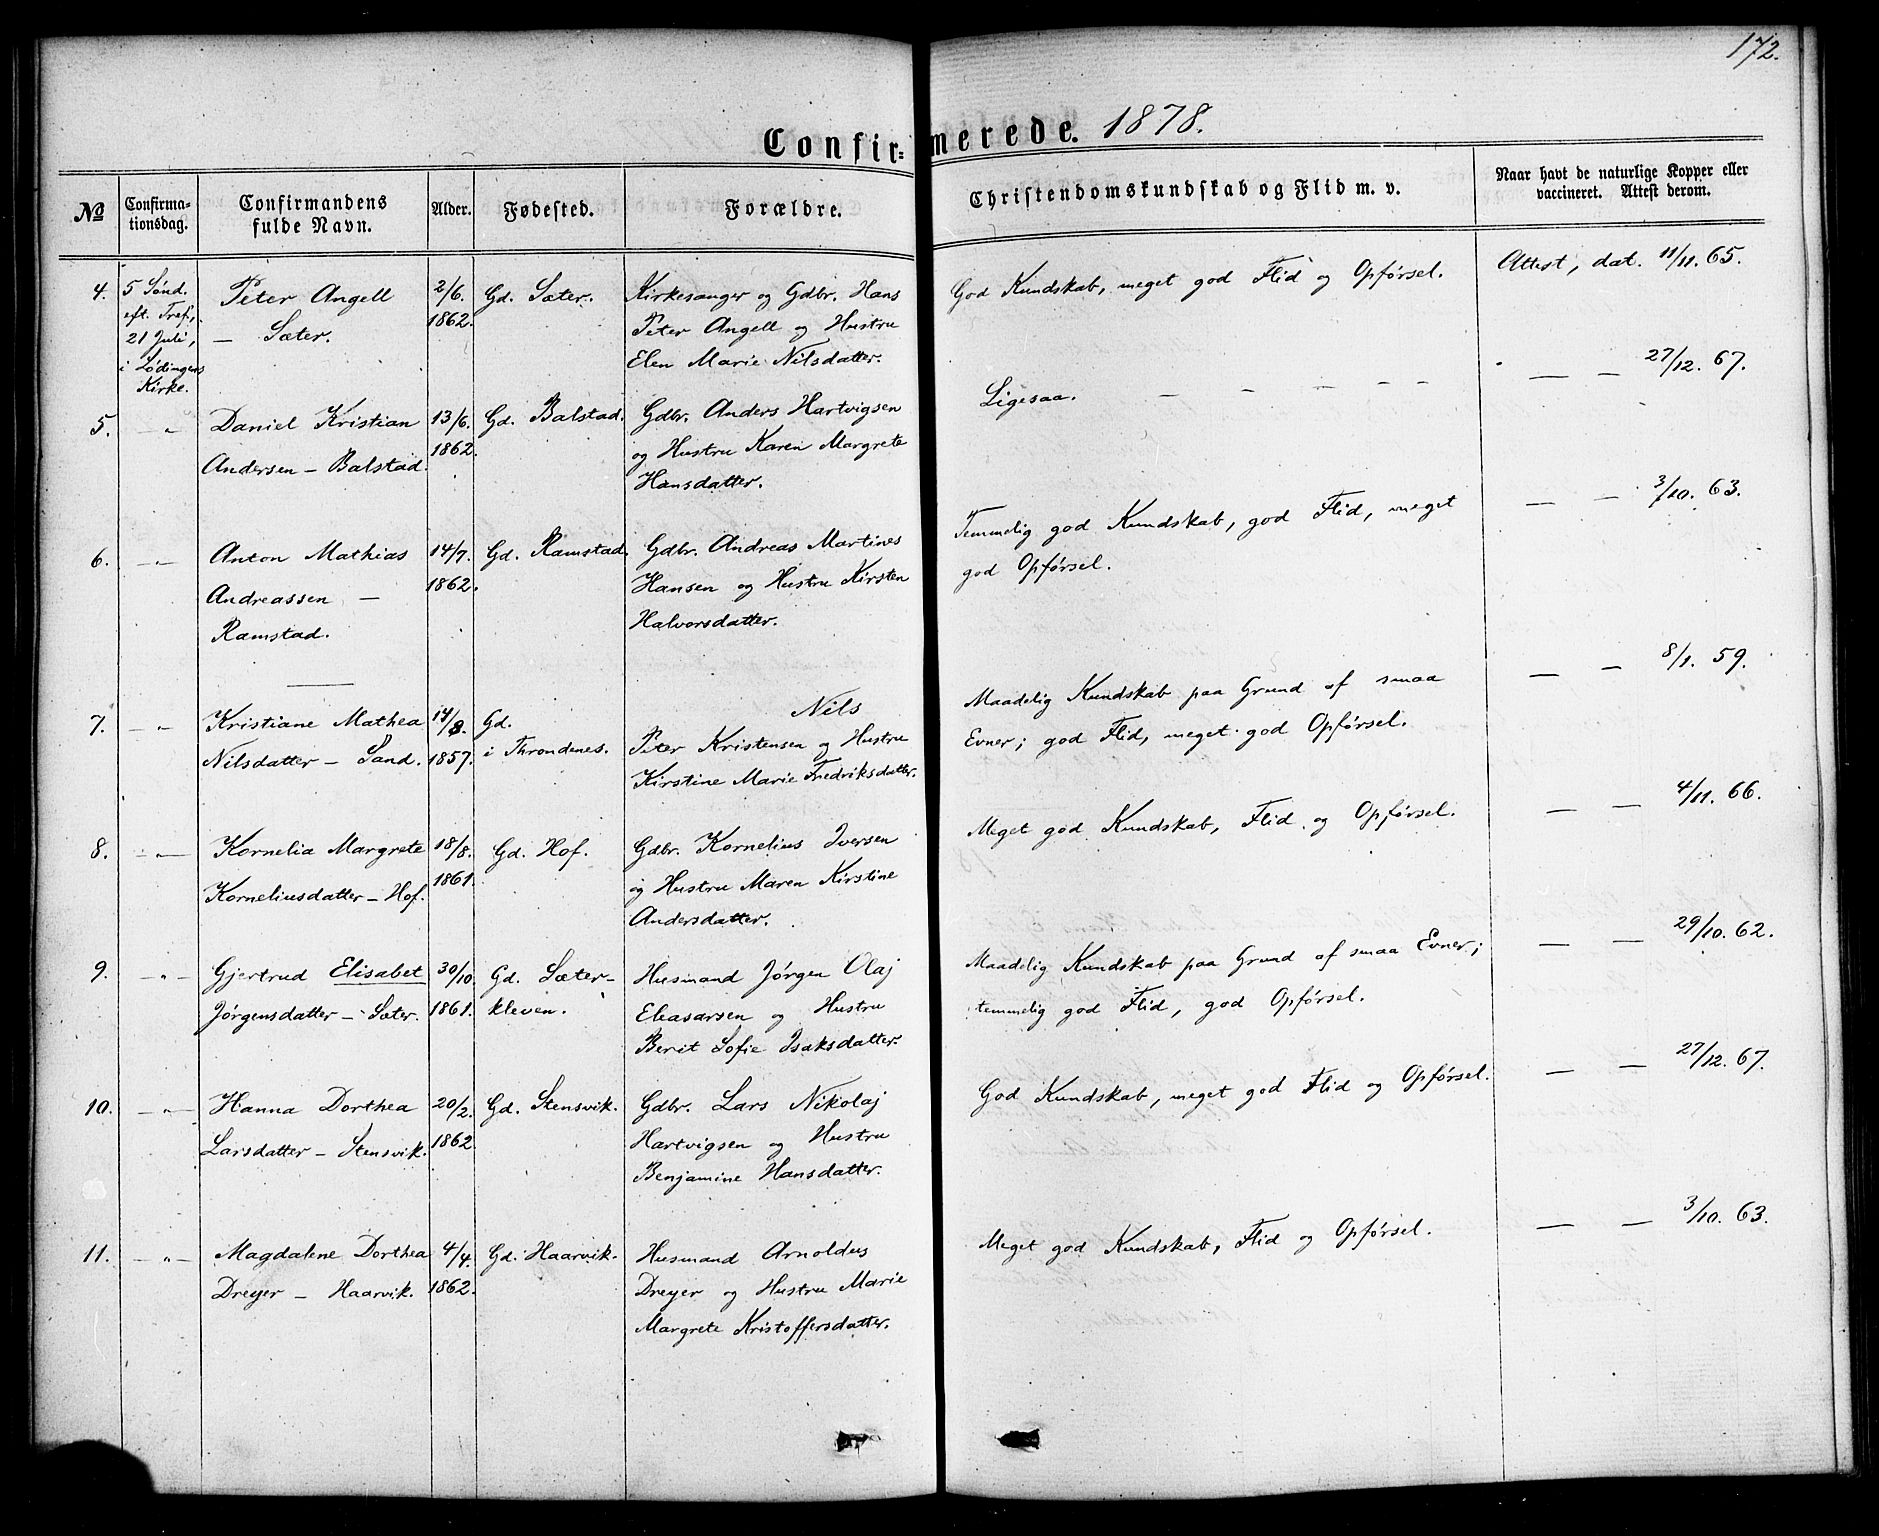 172.
Confirmerede. 1878.
№ Confirmationsdag. Confirmandens fulde Navn. Alder. Fødested. Forældre. Christendomskundskab og Flid m. v. Naar havt de naturlige Kopper eller vaccineret. Attest derom.
4. 5 Sønd. Peter Angell 2/6. Gd. Sæter. Kirkesanger og Gdbr. Hans God Kundskab, meget god Flid og Opførsel. Attest, dat. 11/11. 65.
eft. Tref., — Sæter. 1862. Peter Angell og Hustru
21 Juli, Elen Marie Nilsdatter.
i Lødingens
Kirke.
5. — „ Daniel Kristian 13/6. Gd. Balstad. Gdbr. Anders Hartvigsen Ligesaa. — — — — — — — 27/12. 67.
Andersen — Balstad. 1862. og Hustru Karen Margrete
Hansdatter.
6. — „ — Anton Mathias 14/7. Gd. Ramstad. Gdbr. Andreas Martines Temmelig god Kundskab, god Flid, meget — — 3/10. 63.
Andreassen — 1862. Hansen og Hustru Kirsten god Opførsel.
Ramstad. Halvorsdatter.
7. — „ — Kristiane Mathea 14/8. Gd. Nils Maadelig Kundskab paa Grund af smaa — — 8/1. 59.
Nilsdatter — Sand. 1857. i Throndenes. Peter Kristensen og Hustru Evner; god Flid, meget god Opførsel.
Kirstine Marie Fredriksdatter.
8. — „ — Kornelia Margrete 18/8. Gd. Hof. Gdbr. Kornelius Iversen Meget god Kundskab, Flid og Opførsel. — — 4/11. 66.
Korneliusdatter — Hof. 1861. og Hustru Maren Kirstine
Andersdatter.
9. — „ — Gjertrud Elisabet 30/10. Gd. Sæter- Husmand Jørgen Olaj Maadelig Kundskab paa Grund af smaa Evner; — — 29/10. 62.
Jørgensdatter — Sæter. 1861. kleven. Eleasarsen og Hustru temmelig god Flid, god Opførsel.
Berit Sofie Isaksdatter.
10. — „ — Hanna Dorthea 20/2. Gd. Stensvik. Gdbr. Lars Nikolaj God Kundskab, meget god Flid og Opførsel. — — 27/12. 67.
Larsdatter — Stensvik. 1862 Hartvigsen og Hustru
Benjamine Hansdatter.
11. — „ — Magdalene Dorthea 4/4. Gd. Haarvik. Husmand Arnoldus Meget god Kundskab, Flid og Opførsel. — — 3/10. 63.
Dreyer — Haarvik. 1862. Dreyer og Hustru Marie
Margrete Kristoffersdatter.